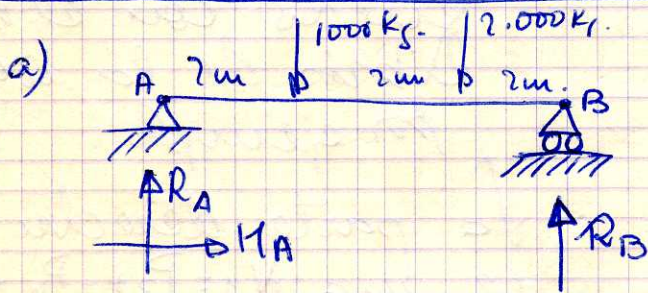 a)
1000 Kg. 2.000 K.
A 2m 2m 2m. B
RA
HA
RB